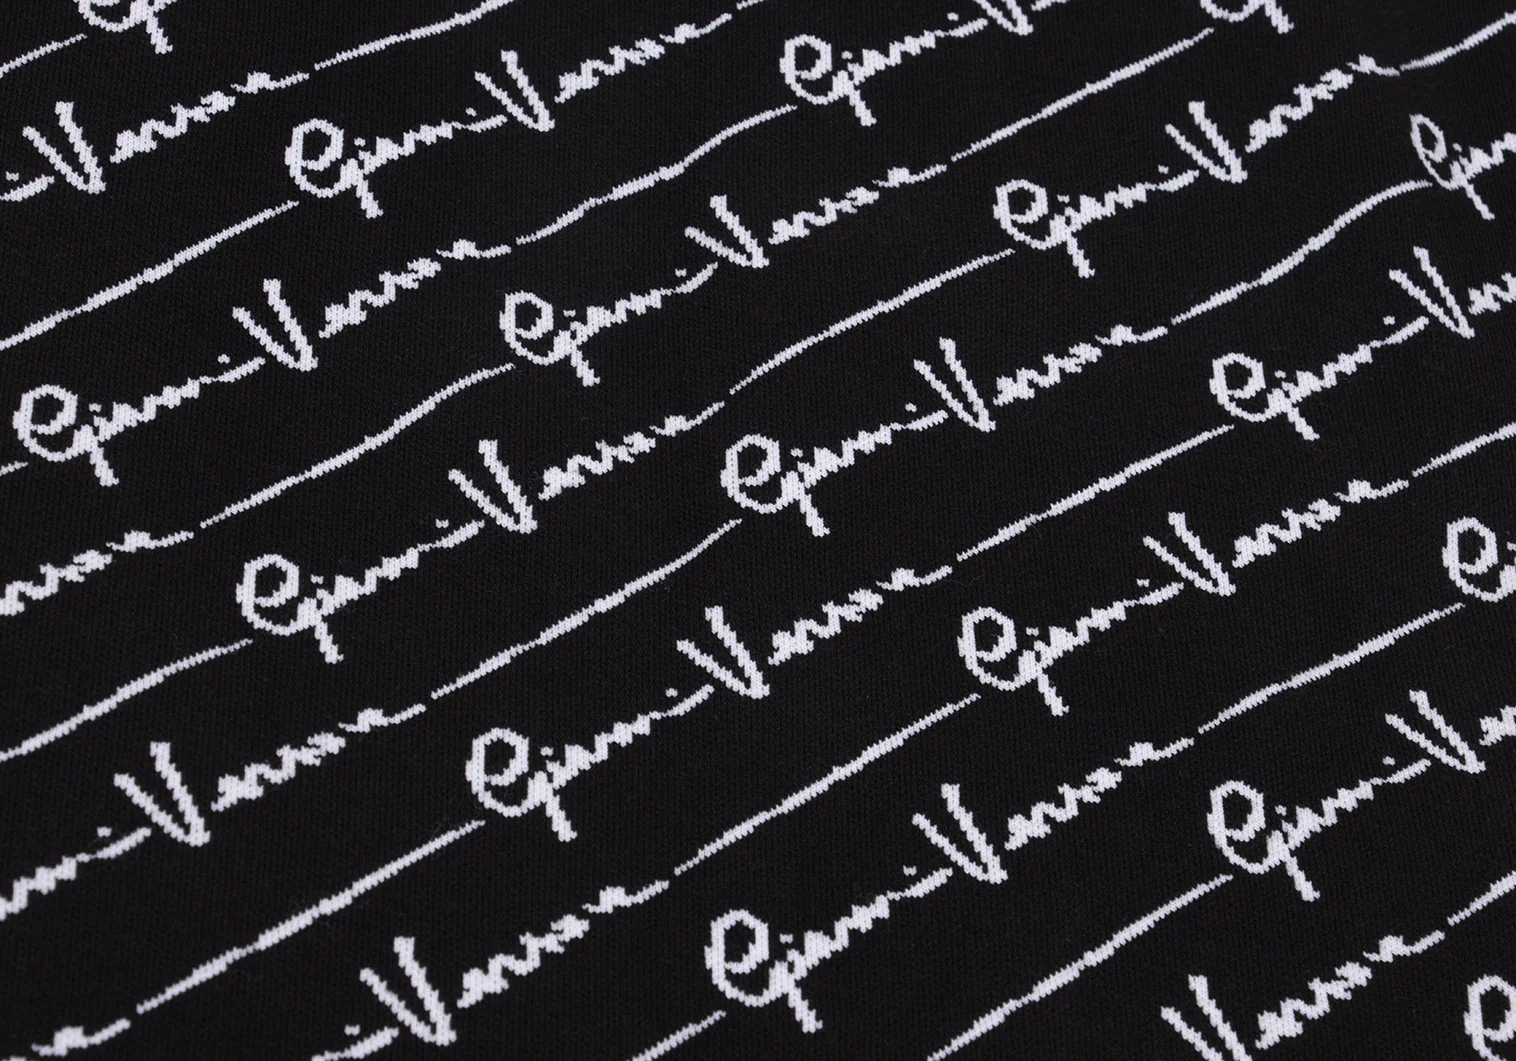 Versace
Gianni Versace
Gianni Versace Gianni V
Gianni Versace
Gianni Versace Gianni Versace
Versace Gianni Versace Gian
Gianni Versace Gianni Ver
Versace Gianni Versace
Gianni Versace
Gianni Ve
Versace